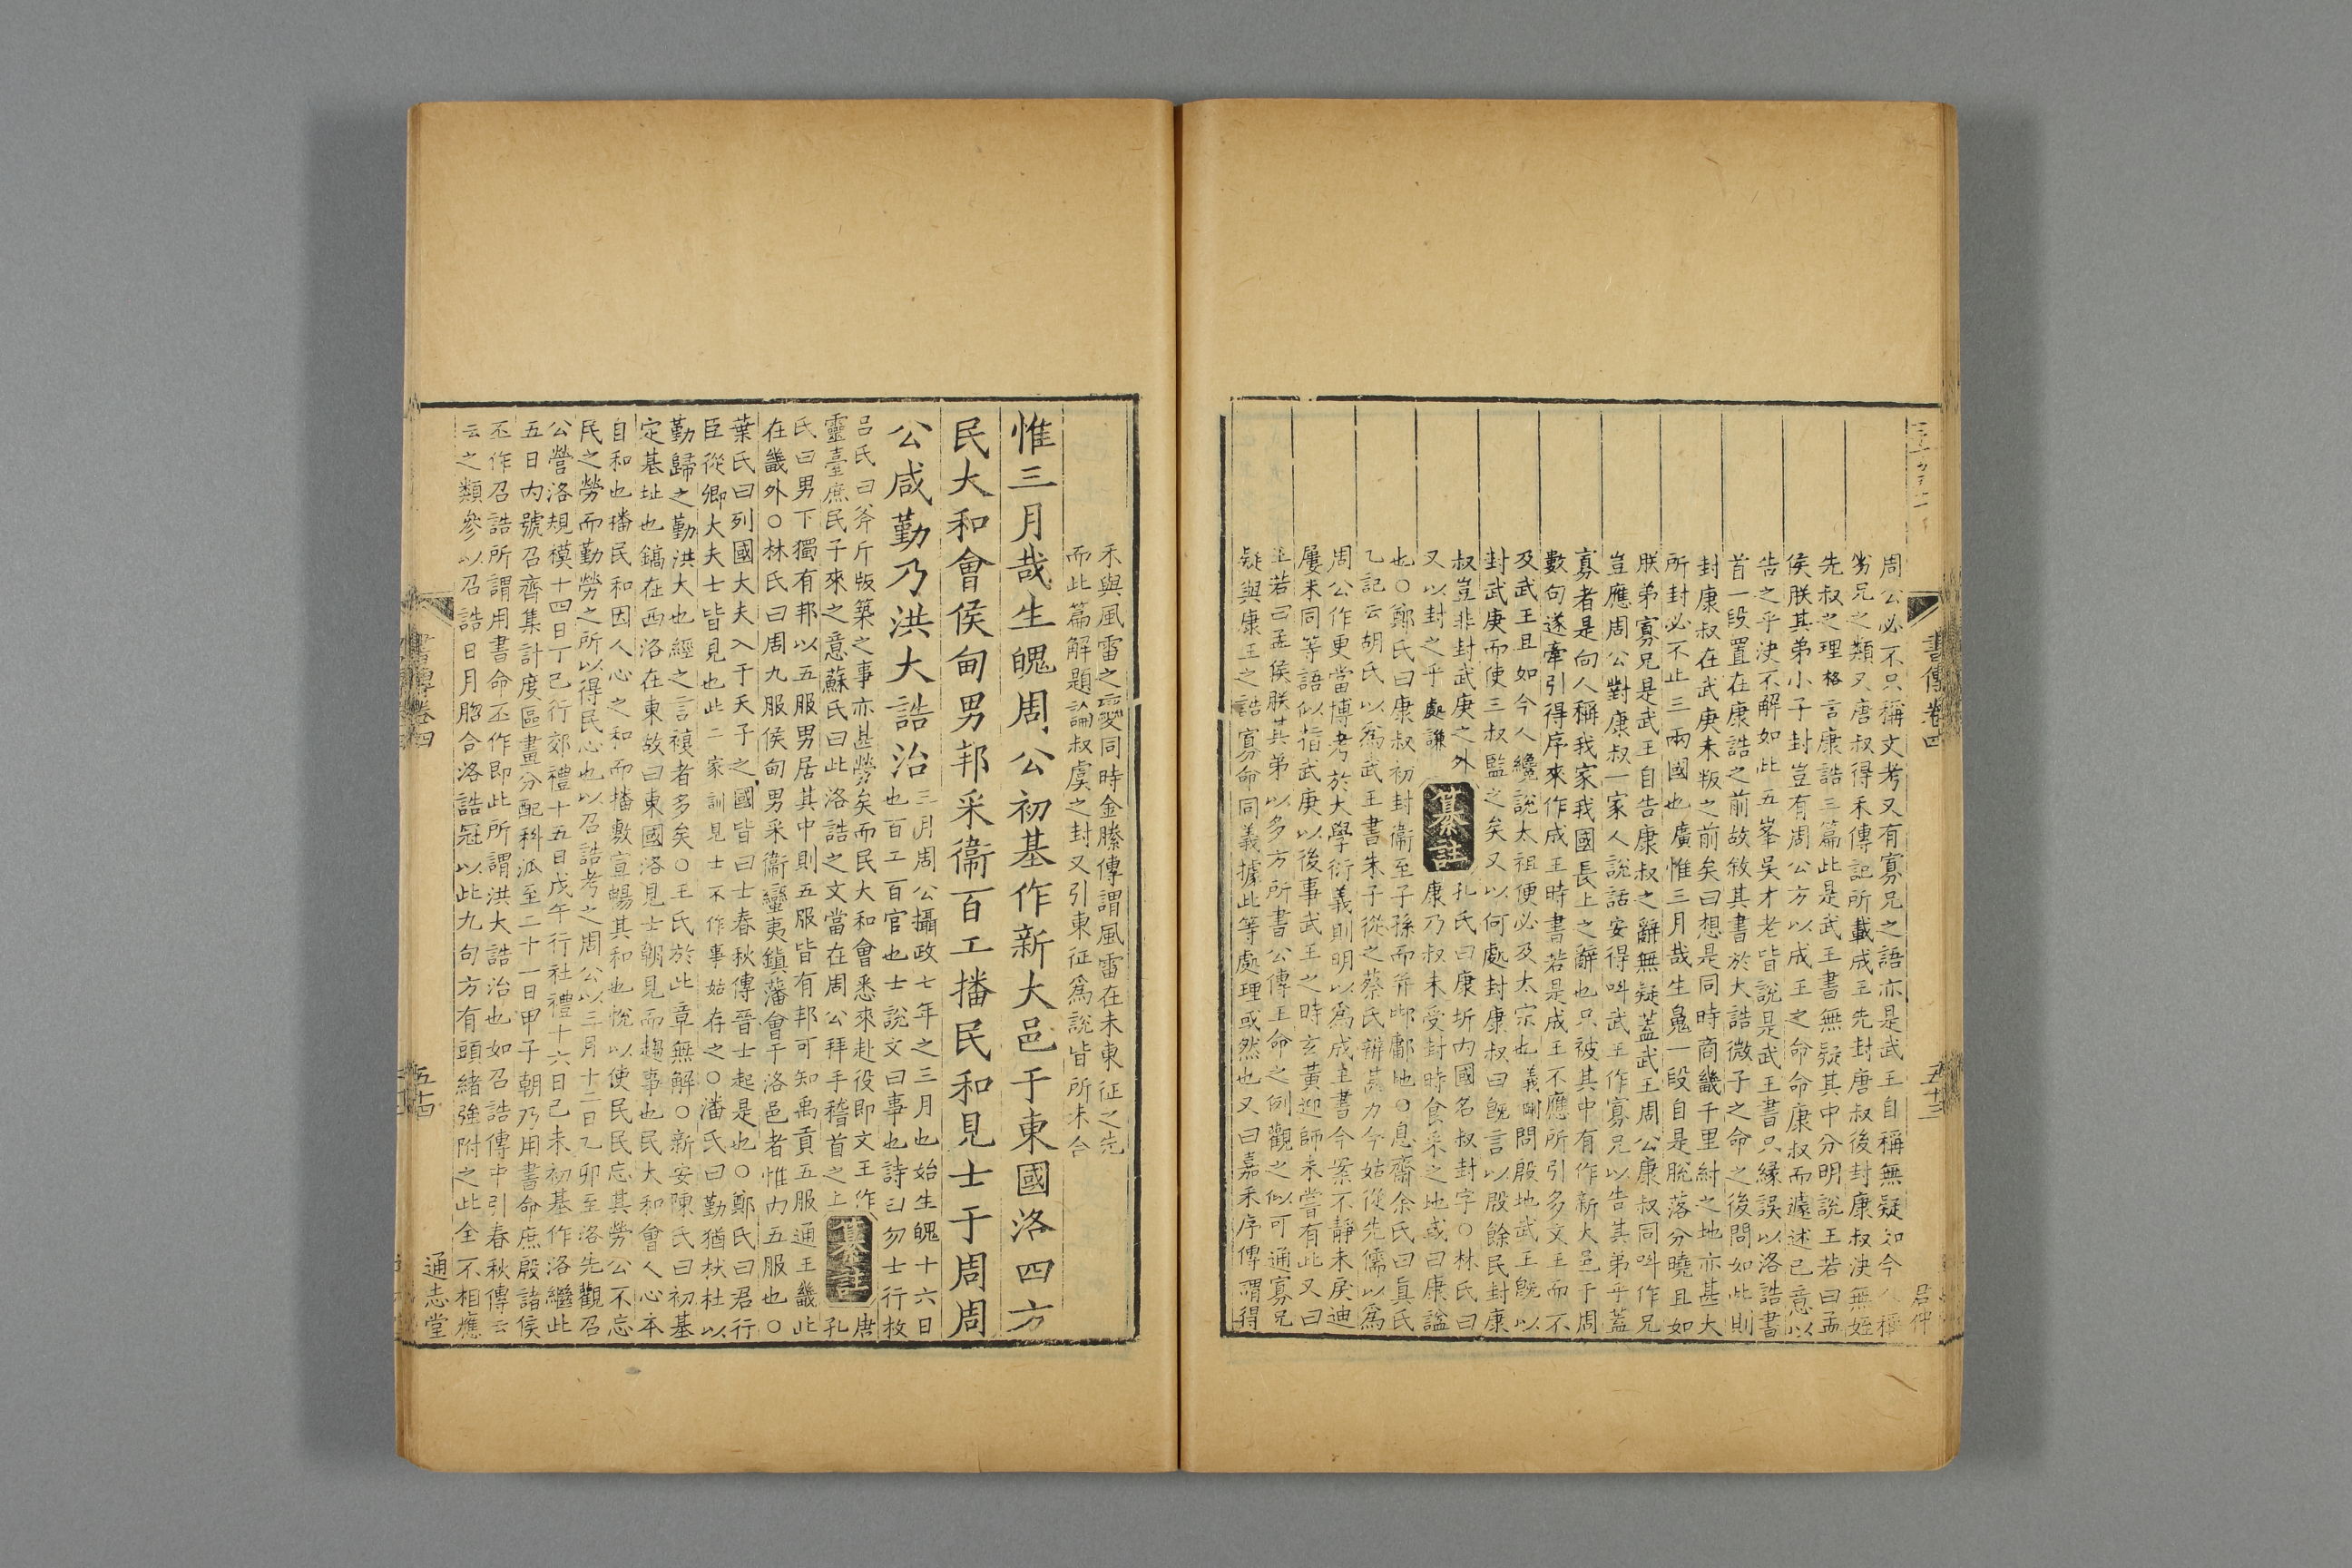 周公必不只稱文考又有寡兄之語亦是武王自稱無疑如今人稱
劣兄之類又唐叔得禾傳記所載成王先封唐叔後封康叔決無姪
先叔之理格言康誥三篇此是武王書無疑其中分明說王若曰孟
侯朕其弟小子封豈有周公方以成王之命命康叔而遽述己意以
告之乎決不解如此五峯吳才老皆說是武王書只緣誤以洛誥書
首一段置在康誥之前故敘其書於大誥微子之命之後問如此則
封康叔在武庚未叛之前矣曰想是同時商畿千里紂之地亦甚大
所封必不止三兩國也廣惟三月哉生魄一段自是脫落分曉且如
朕弟寡兄是武王自告康叔之辭無疑蓋武王周公康叔同叫作兄
豈應周公對康叔一家人說話安得叫武王作寡兄以告其弟乎蓋
寡者是向人稱我家我國長上之辭也只被其中有作新大邑于周
數句遂牽引得序來作成王時書若是成王不應所引多文王而不
及武王且如今人纔說太祖便必及太宗也義剛問殷地武王旣以
封武庚而使三叔監之矣又以何處封康叔曰旣言以殷餘民封康
叔豈非封武庚之外
又以封之乎處謙
纂註
孔氏曰康圻內國名叔封字○林氏曰
康乃叔未受封時食采之地或曰康諡
也○鄭氏曰康叔初封衞至子孫而幷邶鄘地○息齋余氏曰眞氏
乙記云胡氏以爲武王書朱子從之蔡氏辨甚力今姑從先儒以爲
周公作更當博考於大學衍義則明以爲成王書今案不靜未戾迪
屢未同等語似指武庚以後事武王之時玄黃迎師未嘗有此又曰
王若曰孟侯朕其弟以多方所書公傳王命之例觀之似可通寡兄
疑與康王之誥寡命同義據此等處理或然也又曰嘉禾序傳謂得
書傳卷四
五十三
君仲
禾與風雷之變同時金縢傳謂風雷在未東征之先
而此篇解題論叔虞之封又引東征爲說皆所未合
惟三月哉生魄周公初基作新大邑于東國洛四方
民大和會侯甸男邦采衞百工播民和見士于周周
公咸勤乃洪大誥治
三月周公攝政七年之三月也始生魄十六日
也百工百官也士說文曰事也詩曰勿士行枚
呂氏曰斧斤版築之事亦甚勞矣而民大和會悉來赴役即文王作
靈臺庶民子來之意蘇氏曰此洛誥之文當在周公拜手稽首之上
纂註
唐孔
氏曰男下獨有邦以五服男居其中則五服皆有邦可知禹貢五服通王畿此
在畿外○林氏曰周九服侯甸男采衞蠻夷鎮藩會于洛邑者惟內五服也○
葉氏曰列國大夫入于天子之國皆曰士春秋傳晉士起是也○鄭氏曰君行
臣從卿大夫士皆見也此二家訓見士不作事姑存之○潘氏曰勤猶杕杜以
勤歸之勤洪大也經之言禳者多矣○王氏於此章無解○新安陳氏曰初基
定基址也鎬在西洛在東故曰東國洛見士朝見而趨事也民大和會人心本
自和也播民和因人心之和而播敷宣暢其和也悅以使民民忘其勞公不忘
民之勞而勤勞之所以得民心也以召誥考之周公以三月十二日乙卯至洛先觀召
公營洛規模十四日丁巳行郊禮十五日戊午行社禮十六日己未初基作洛繼此
五日內號召齊集計度區畫分配科派至二十一日甲子朝乃用書命庶殷諸侯
丕作召誥所謂用書命丕作即此所謂洪大誥治也如召誥傳中引春秋傳云
云之類參以召誥日月脗合洛誥冠以此九句方有頭緒強附之此全不相應
書傳卷四
五十四
通志堂